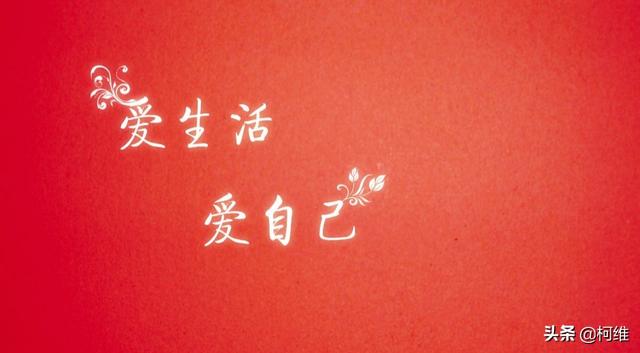 爱生活
爱自己
头条 @柯维